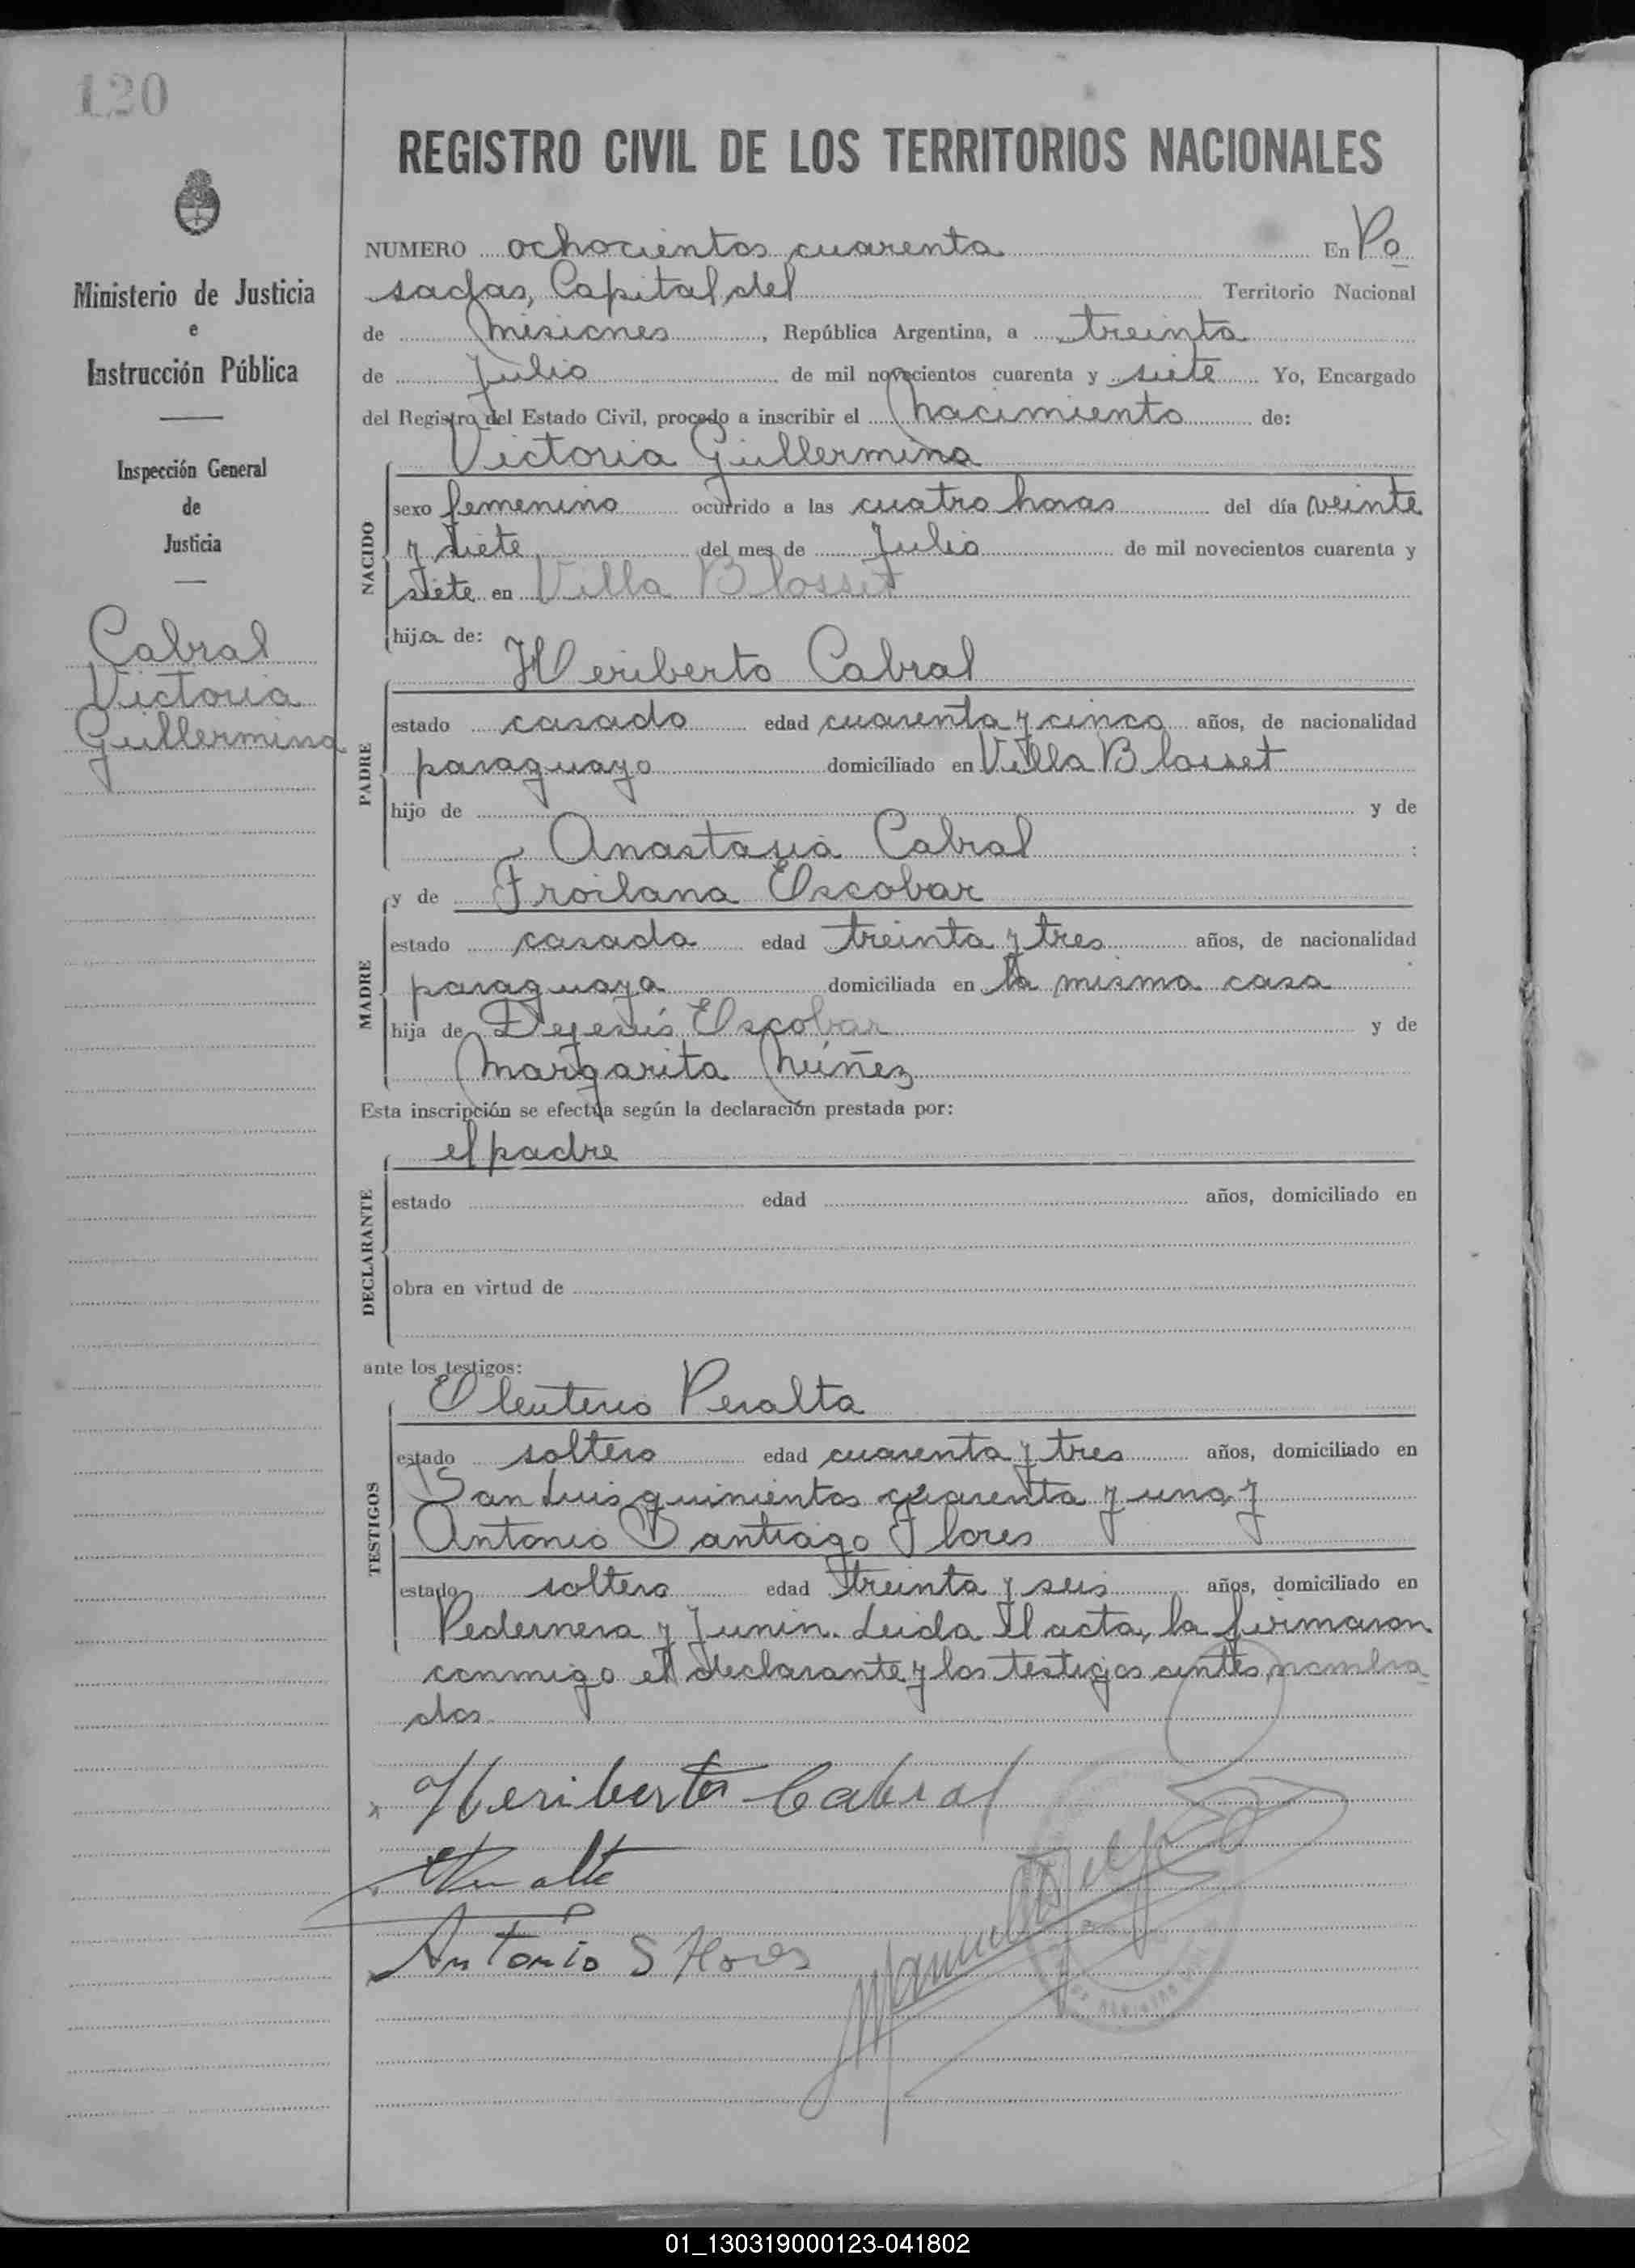 120
REGISTRO CIVIL DE LOS TERRITORIOS NACIONALES
Ministerio de Justicia
e
Instrucción Pública
Inspección General
de
Justicia
Cabral
Victoria
Guillermina
NUMERO ochocientos cuarenta En Po
sadas, Capital del Territorio Nacional
de Misiones, República Argentina, a treinta
de Julio de mil novecientos cuarenta y siete Yo, Encargado
del Registro del Estado Civil, procedo a inscribir el Nacimiento de:
Victoria Guillermina
NACIDO
sexo femenino ocurrido a las cuatro horas del día veinte
y siete del mes de Julio de mil novecientos cuarenta y
siete en Villa Blosset
hija de:
Heriberto Cabral
PADRE
estado casado edad cuarenta y cinco años, de nacionalidad
paraguayo domiciliado en Villa Blosset
hijo de y de
Anastasia Cabral :
y de Froilana Escobar
MADRE
estado casada edad treinta y tres años, de nacionalidad
paraguaya domiciliada en la misma casa
hija de Dejesús Escobar y de
Margarita Núñez
Esta inscripción se efectúa según la declaración prestada por:
el padre
DECLARANTE
estado edad años, domiciliado en
obra en virtud de
ante los testigos:
Eleuterio Peralta
TESTIGOS
estado soltero edad cuarenta y tres años, domiciliado en
San Luis quinientos cuarenta y uno, y
Antonio Santiago Flores
estado soltero edad treinta y seis años, domiciliado en
Pedernera y Junin. Leida el acta, la firmaron
conmigo el declarante y los testigos antes nombra
dos.
Heriberto Cabral
Peralta
Antonio S Flores
Manuel
01_130319000123-041802